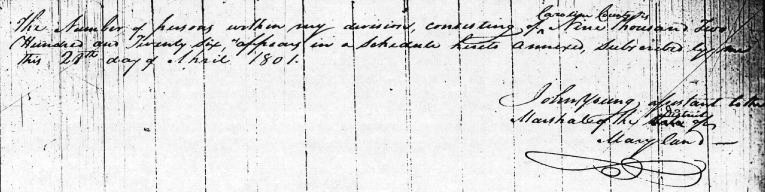 The Number of persons within my division, consisting of Caroline County is Nine thousand Two
Hundred and Twenty Six, appears in a Schedule hereto annexed, Subscribed by me
this 21th day of April 1801.
John Young assistant to the
Marshal of the District of
Maryland